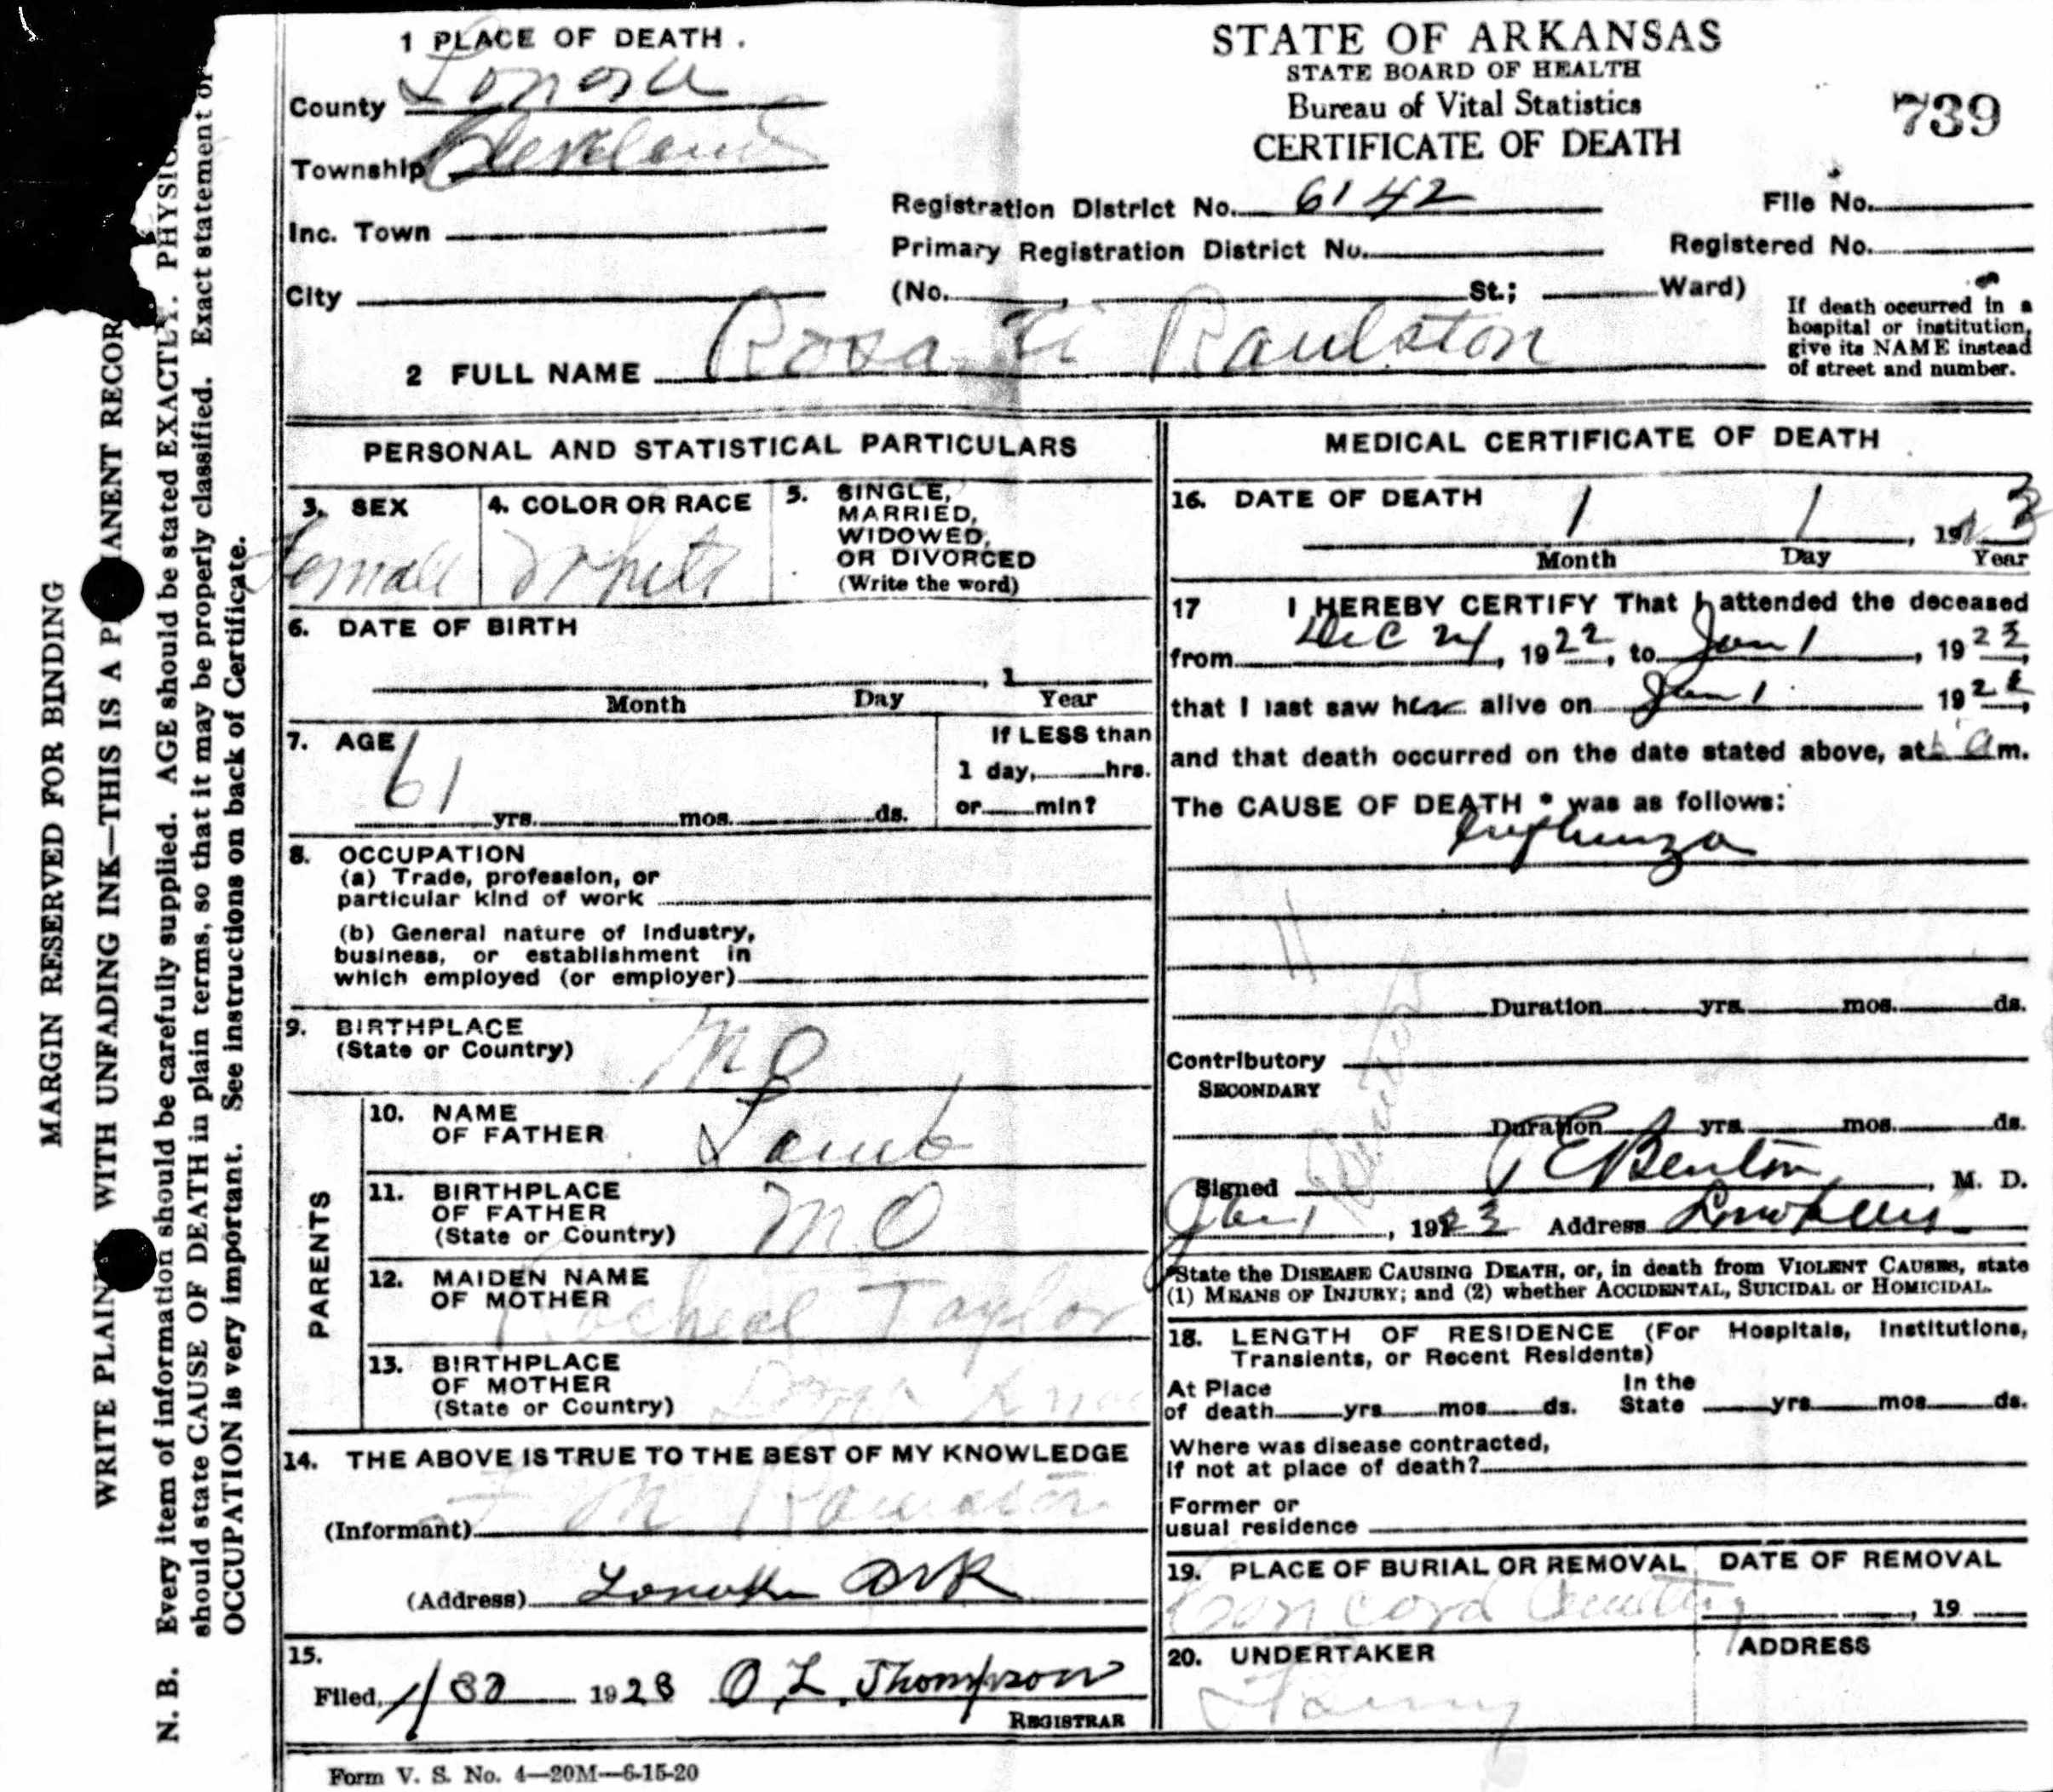 1 PLACE OF DEATH.
County
Township Cleveland
Inc. Town
City
STATE OF ARKANSAS
STATE BOARD OF HEALTH
Bureau of Vital Statistics
CERTIFICATE OF DEATH
739
Registration District No. 6142 File No.
Primary Registration District No. Registered No.
(No. , St.; Ward)
If death occurred in a
hospital or institution,
give its NAME instead
of street and number.
2 FULL NAME Rosa Raulston
PERSONAL AND STATISTICAL PARTICULARS
3. SEX
Female
4. COLOR OR RACE
White
5. SINGLE,
MARRIED,
WIDOWED,
OR DIVORCED
(Write the word)
6. DATE OF BIRTH
, 1
Month Day Year
7. AGE
61
yrs. mos. ds.
If LESS than
1 day, hrs.
or min?
8. OCCUPATION
(a) Trade, profession, or
particular kind of work
(b) General nature of Industry,
business, or establishment in
which employed (or employer)
9. BIRTHPLACE
(State or Country) MO
PARENTS
10. NAME
OF FATHER Lamb
11. BIRTHPLACE
OF FATHER
(State or Country) MO
12. MAIDEN NAME
OF MOTHER Racheal Taylor
13. BIRTHPLACE
OF MOTHER
(State or Country)
14. THE ABOVE IS TRUE TO THE BEST OF MY KNOWLEDGE
(Informant) M
(Address) Lonoke Ark
15.
Filed, 1/30 1923 O. L. Thompson
REGISTRAR
Form V. S. No. 4—20M—6-15-20
MEDICAL CERTIFICATE OF DEATH
16. DATE OF DEATH 1 1 , 1923
Month Day Year
17 I HEREBY CERTIFY That I attended the deceased
from Dec 24, 1922, to Jan 1, 1923,
that I last saw her alive on Jan 1 192
and that death occurred on the date stated above, at a m.
The CAUSE OF DEATH * was as follows:
Influenza
Duration yrs. mos. ds.
Contributory
SECONDARY
Duration yrs. mos. ds.
Signed E Benton, M. D.
Jan 1, 1923 Address
*State the DISEASE CAUSING DEATH, or, in death from VIOLENT CAUSES, state
(1) MEANS OF INJURY; and (2) whether ACCIDENTAL, SUICIDAL or HOMICIDAL.
18. LENGTH OF RESIDENCE (For Hospitals, Institutions,
Transients, or Recent Residents)
At Place
of death yrs. mos. ds.
In the
State yrs. mos. ds.
Where was disease contracted,
if not at place of death?
Former or
usual residence
19. PLACE OF BURIAL OR REMOVAL
Concord Cemetery
DATE OF REMOVAL
, 19
20. UNDERTAKER
ADDRESS
MARGIN RESERVED FOR BINDING
WITH UNFADING INK—THIS IS A
N. B. Every item of information should be carefully supplied. AGE should be stated EXACTLY.
should state CAUSE OF DEATH in plain terms, so that it may be properly classified. Exact statement of
OCCUPATION is very important. See instructions on back of Certificate.